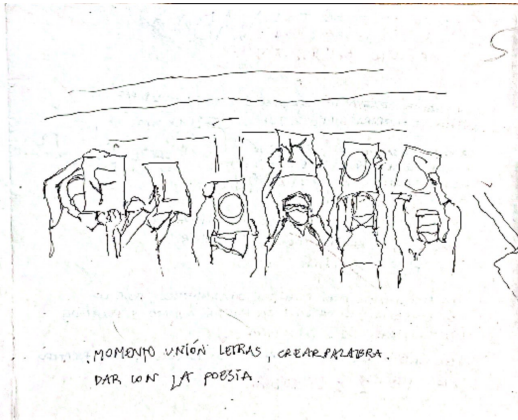 S
F L O K O S
MOMENTO UNIÓN LETRAS, CREAR PALABRA.
DAR CON LA POESÍA.